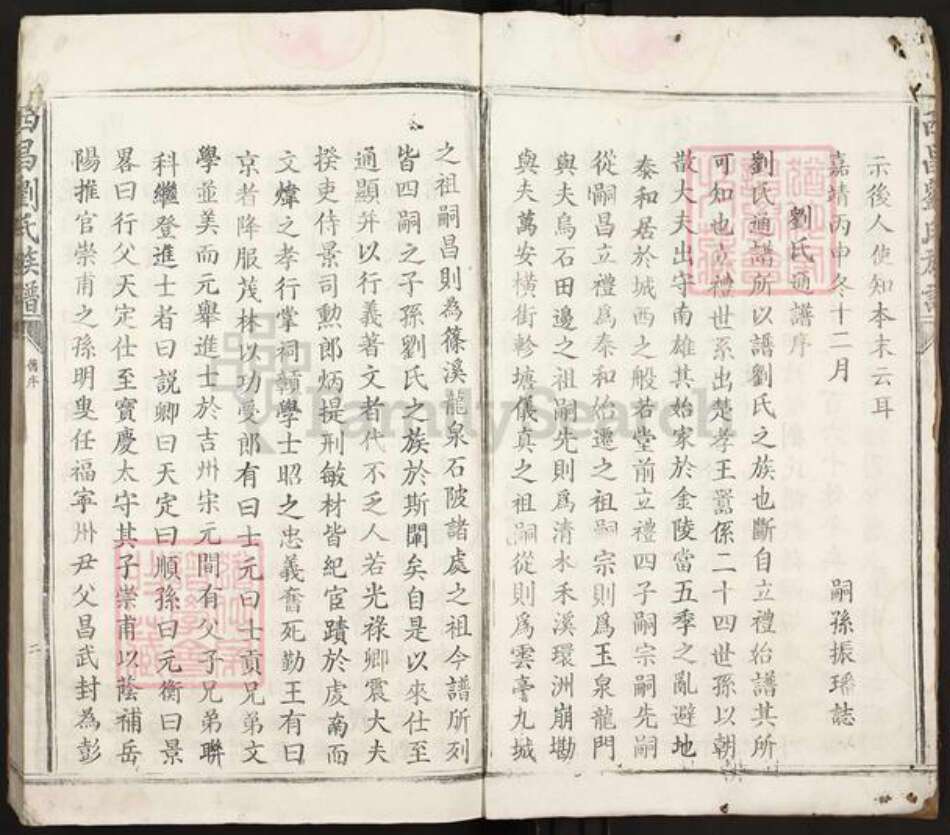 示後人使知本末云耳
嘉靖丙申冬十二月
嗣孫振璠誌
劉氏通譜序
劉氏通譜所以譜劉氏之族也斷自立禮始譜其所
可知也立禮世系出楚孝王囂係二十四世孫以朝
散大夫出守南雄其始家於金陵當五季之亂避地
泰和居於城西之般若堂前立禮四子嗣宗嗣先嗣
從嗣昌立禮爲泰和始遷之祖嗣宗則爲玉泉龍門
與夫烏石田邊之祖嗣先則爲清水禾溪環洲崩墈
與夫萬安橫街軫塘儀真之祖嗣從則爲雲亭九城
之祖嗣昌則為篠溪龍泉石陂諸處之祖今譜所列
皆四嗣之子孫劉氏之族於斯闡矣自是以來仕至
通顯并以行義著文者代不乏人若光祿卿震大夫
揆吏侍景司勳郎炳提刑敏材皆紀宦蹟於虔南而
文煒之孝行掌祠贛學士昭之忠義奮死勤王有曰
京者降服茂林以功受郎有曰士元曰士貢兄弟文
學並美而元舉進士於吉州宋元間有父子兄弟聯
科繼登進士者曰説卿曰天定曰順孫曰元衡曰景
畧曰行父天定仕至寶慶太守其子崇甫以蔭補岳
陽推官崇甫之孫明叟任福寧州尹父昌武封為彭
西昌劉氏族譜
舊序
二
FamilySearch